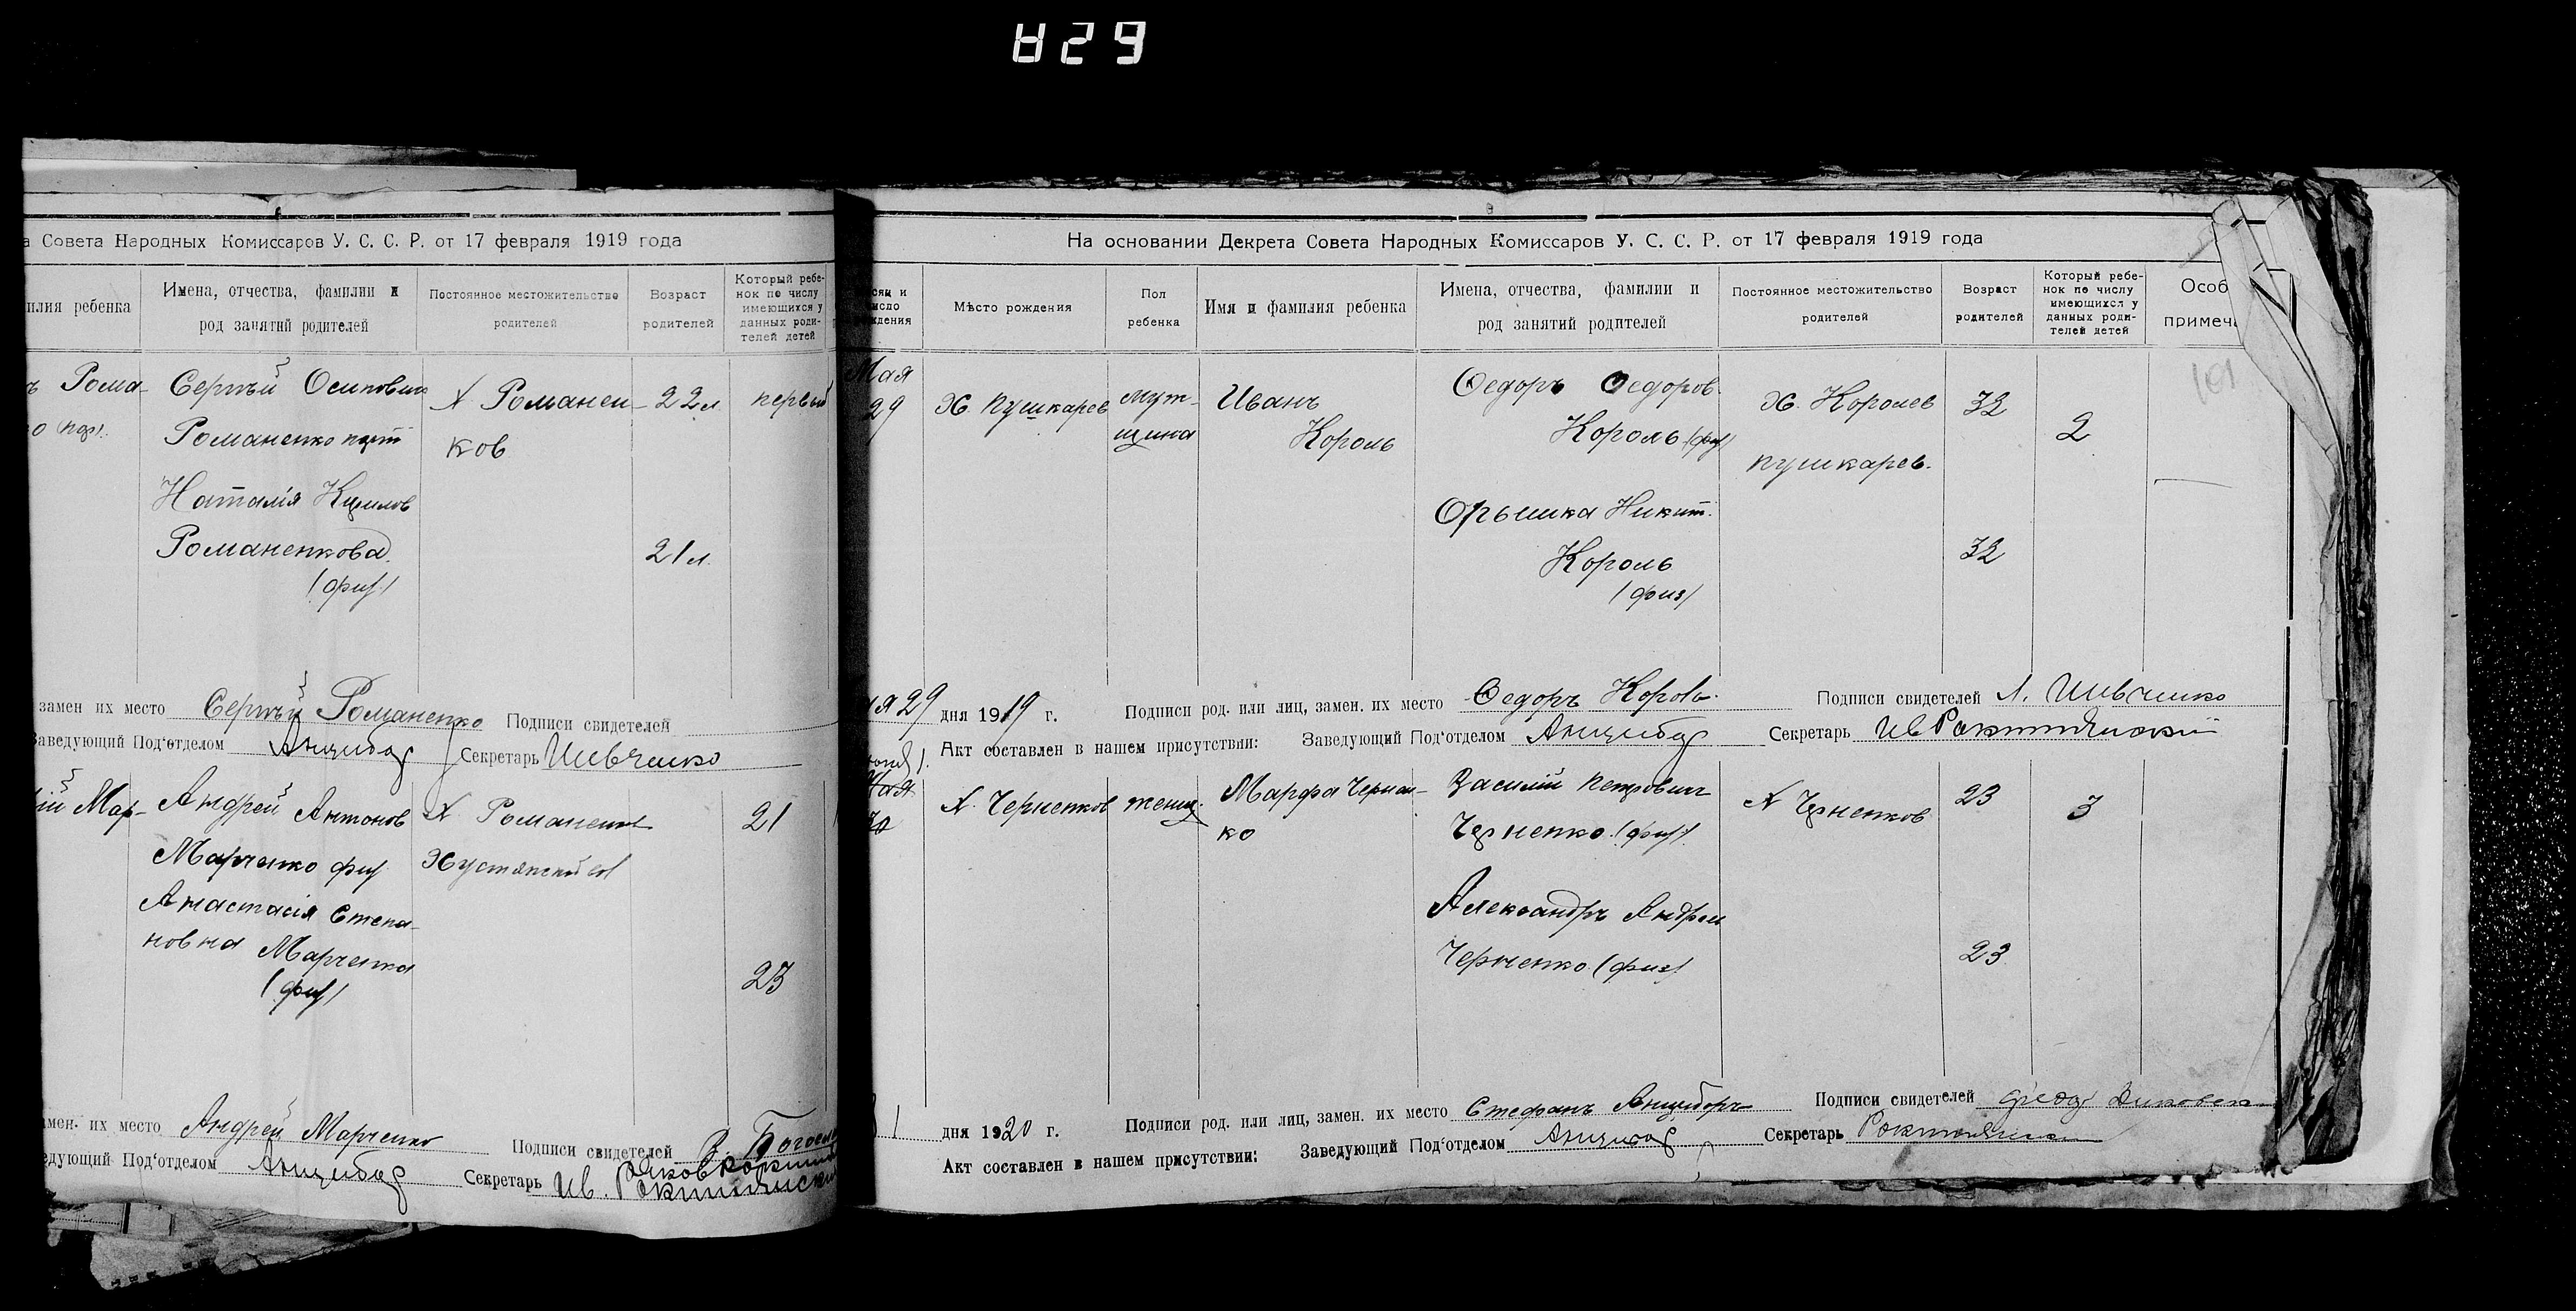 829
а Совета Народных Комиссаров У. С. С. Р. от 17 февраля 1919 года
илия ребенка
Имена, отчества, фамилии и
род занятий родителей
Постоянное местожительство
родителей
Возраст
родителей
Который ребе-
нок по числу
имеющихся у
данных роди-
телей детей
ъ Рома-
Сергѣй Осипович
Х Романен-
22 л
первый
Романенко
ков
Наталія
Романенкова
21 л.
(физ)
замен их место Сергѣй Романенко Подписи свидетелей
Заведующий Под'отделом Анцибор Секретарь Шевченко
ій Мар-
Андрей Антонов
Х Романенков
21
Марченко физ
Анастасія Степа-
новна Марченко
(физ)
23
амен. их место Андрей Марченко Подписи свидетелей
едующий Под'отделом Анцибор Секретарь Ив. Ракитянский
На основании Декрета Совета Народных Комиссаров У. С. С. Р. от 17 февраля 1919 года
сяц и
исло
ждения
Мѣсто рождения
Пол
ребенка
Имя и фамилия ребенка
Имена, отчества, фамилии и
род занятий родителей
Постоянное местожительство
родителей
Возраст
родителей
Который ребе-
нок по числу
имеющихся у
данных роди-
телей детей
Особ
примеча
101
Мая
29
Х. Пушкарев
муж-
щина
Иванъ
Король
Федоръ Федоров.
Король (физ)
Х. Королев
пушкарев.
32
2
Орышка Никит.
Король
(физ)
32
ая 29 дня 1919 г. Подписи род. или лиц, замен. их место Федоръ Король Подписи свидетелей Л. Шевченко
Акт составлен в нашем присутствии: Заведующий Под'отделом Анцибор Секретарь Ив Ракитянский
Мая
Х. Черненков
женщ.
Марфа Чернен-
ко
Василій Петрович
Черненко (физ)
Х Черненков
23
3
Александръ Андреи
Черненко (физ)
23
1 дня 1920 г. Подписи род. или лиц, замен. их место Стефанъ Анциборъ Подписи свидетелей
Акт составлен в нашем присутствии: Заведующий Под'отделом Анцибор Секретарь Ракитянский